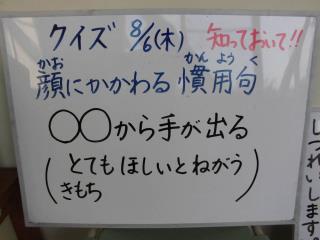 クイズ 8/6(木) 知っておいて!!
顔にかかわる慣用句
かお かんようく
○○から手が出る
(とてもほしいとねがう
きもち)
しつれいします。